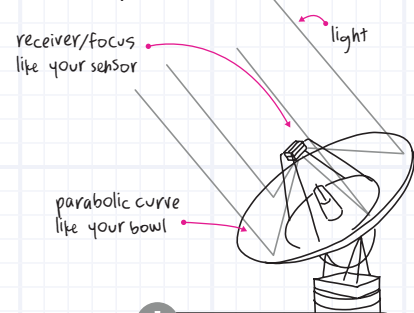 light
receiver/focus
like your sensor
parabolic curve
like your bowl